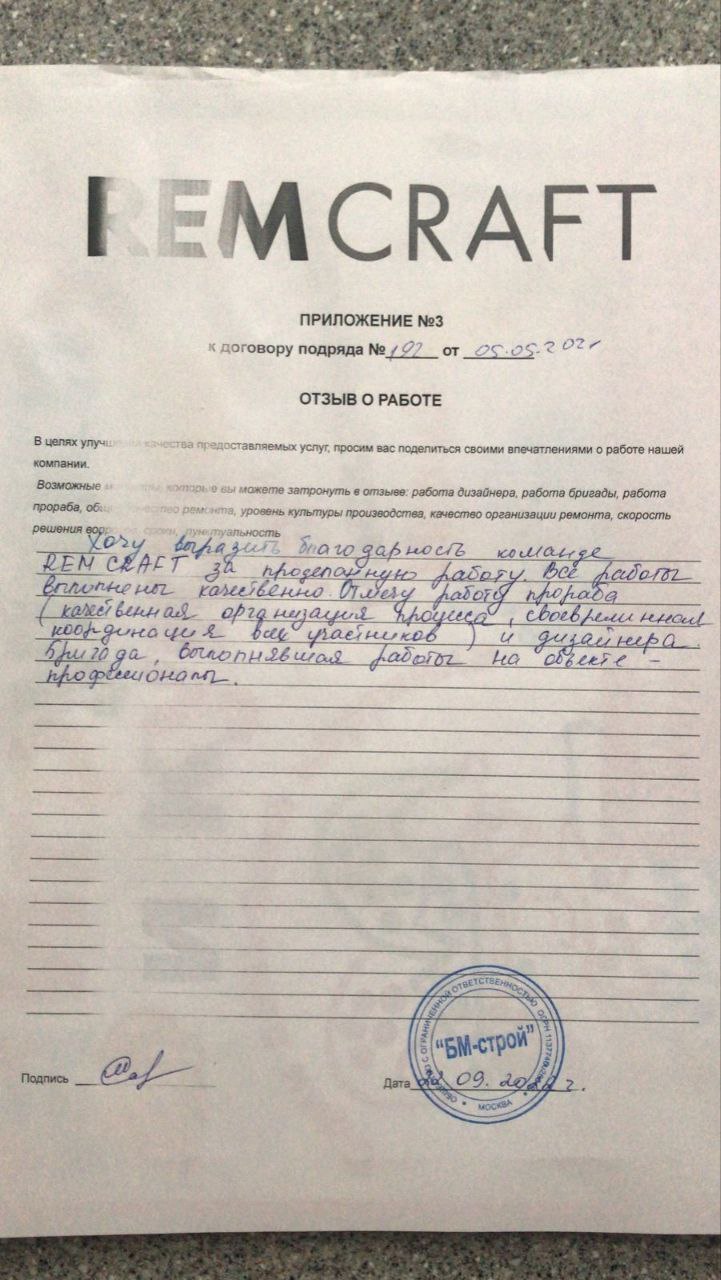 REMCRAFT
ПРИЛОЖЕНИЕ №3
к договору подряда № 192 от 05.05.2021
ОТЗЫВ О РАБОТЕ
В целях улучшения качества предоставляемых услуг, просим вас поделиться своими впечатлениями о работе нашей
компании.
Возможные которые вы можете затронуть в отзыве: работа дизайнера, работа бригады, работа
прораба, качество ремонта, уровень культуры производства, качество организации ремонта, скорость
решения вопросов, сроки, пунктуальность
Хочу выразить благодарность команде
REM CRAFT за проделанную работу. Все работы
выполнены качественно. Отмечу работу прораба
(качественная организация процесса, своевременная
координация всех участников) и дизайнера.
Бригада, выполнявшая работы на объекте –
профессионалы.
ОБЩЕСТВО С ОГРАНИЧЕННОЙ ОТВЕТСТВЕННОСТЬЮ ОГРН
"БМ-строй"
МОСКВА
Подпись
Дата 09.